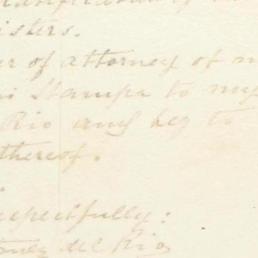 isters.
er of attorney of m
Stampa to my
Rio and beg to
thereof.
espectfully:
Rio